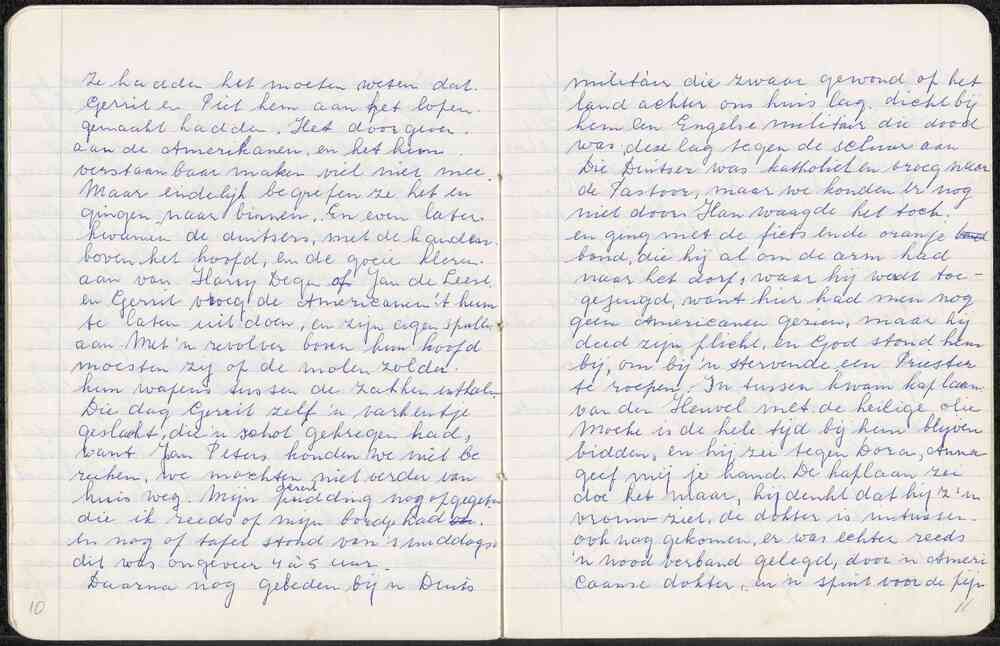 Ze hadden het moeten weten dat.
Gerrit en Piet hem aan het lopen.
gemaakt hadden. Het doorgeven.
aan de Amerikanen, en het hun
verstaanbaar maken viel niet mee.
Maar eindelijk begrepen ze het en
gingen naar binnen. En even later
kwamen de duitsers, met de handen.
boven het hoofd, en de goeie kleren.
aan van Harry Degen of Jan de Leest.
en Gerrit vroeg de Americanen 't hun
te laten uitdoen, en zijn eigen spullen
aan. Met 'n revolver boven hun hoofd
moesten zij op de molen zolder.
hun wapens tussen de zakken uithalen
Die dag Gerrit zelf 'n varkentje
geslacht, die 'n schot gekregen had,
want Jan Peters konden we niet be
reiken, we mochten niet verder van
huis weg. Mijn pudding nog opgegeten
die ik reeds op mijn bordje had
en nog op tafel stond van 's middags.
dit was ongeveer 4 à 5 uur.
Daarna nog gebeden bij 'n Duits
10
militair die zwaar gewond op het
land achter ons huis lag. dicht bij
hem een Engelse militair die dood
was, deze lag tegen de schuur aan
Die Duitser was katholiek en vroeg naar
de Pastoor, maar we konden er nog
niet door. Han waagde het toch.
en ging met de fiets en de oranje band
band, die hij al om de arm had
naar het dorp, waar hij werdt toe-
gejuigd, want hier had men nog
geen Americanen gezien, maar hij
deed zijn plicht, en God stond hem
bij, om bij 'n stervende een Priester
te roepen. In tussen kwam kaplaan
van den Heuvel met de heilige olie
Moeke is de hele tijd bij hem blijven
bidden, en hij zei tegen Dora, Anna
geef mij je hand. De kaplaan zei
doe het maar, hij denkt dat hij z'n
vrouw ziet. de dokter is intussen.
ook nog gekomen, er was echter reeds
'n nood verband gelegd, door 'n Ameri
caanse dokter, en 'n spuit voor de pijn
11